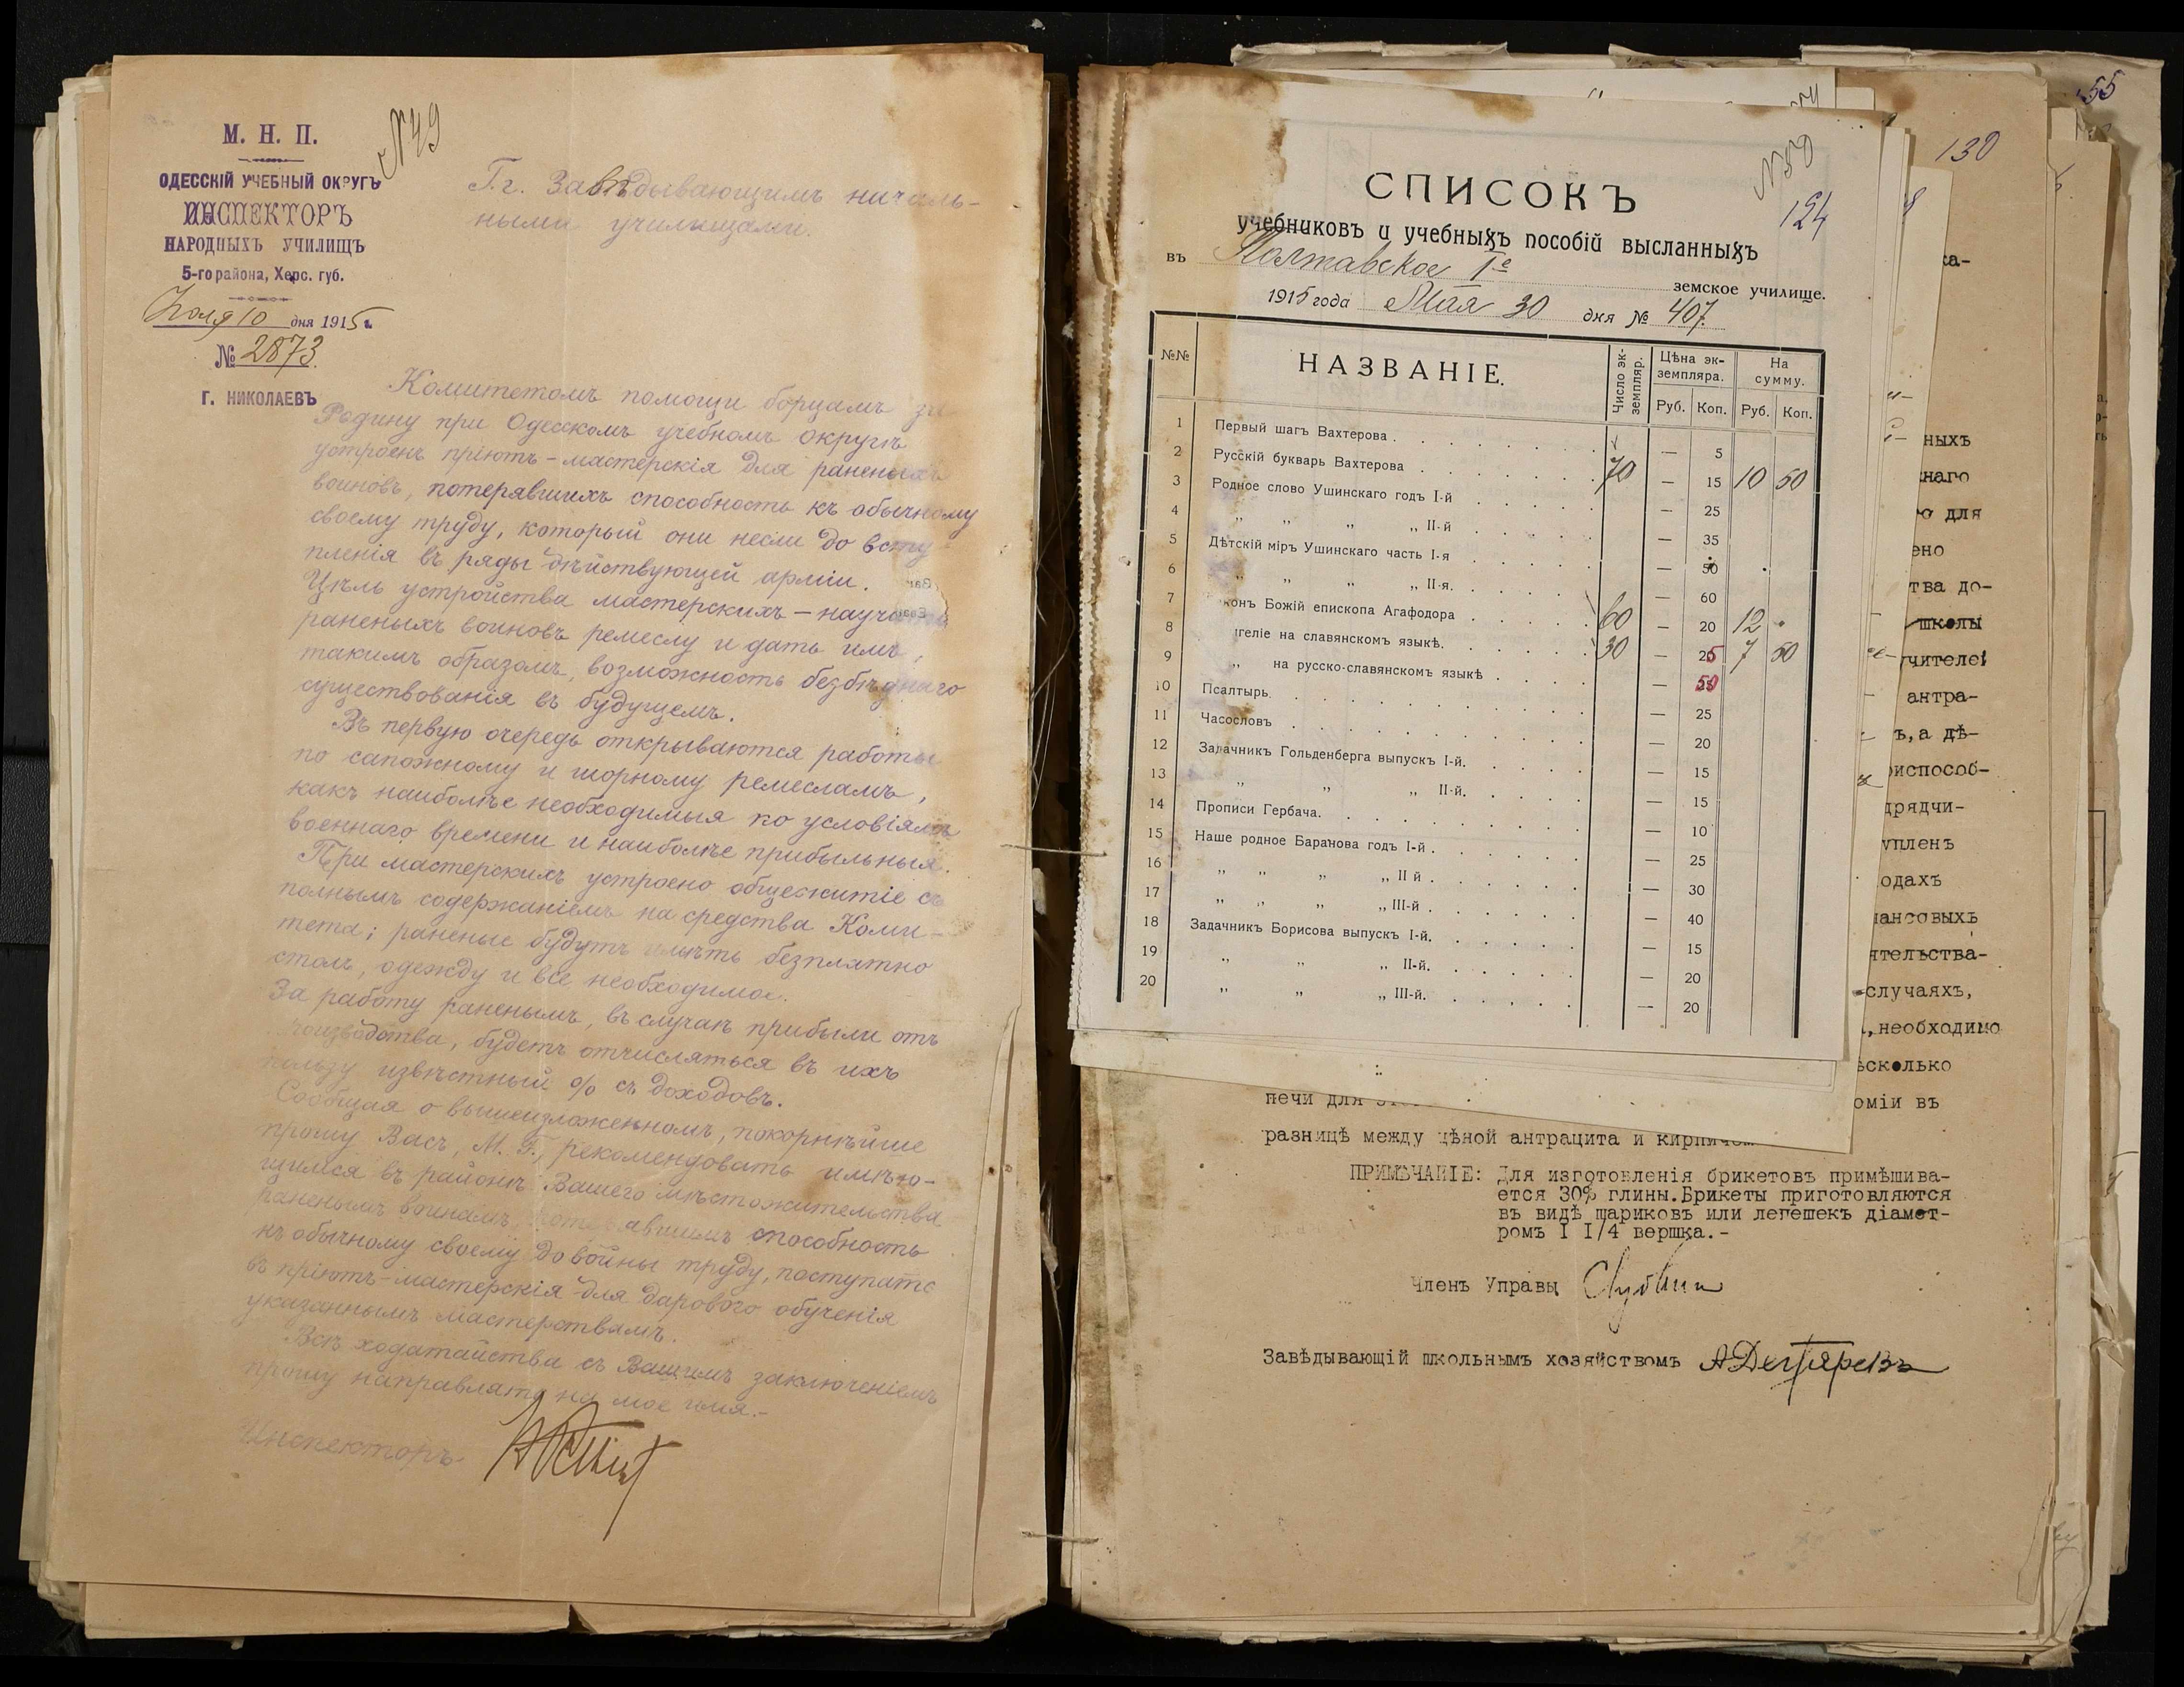 М. Н. П.
ОДЕССКІЙ УЧЕБНЫЙ ОКРУГЪ
ИНСПЕКТОРЪ
НАРОДНЫХЪ УЧИЛИЩЪ
5-го района, Херс. губ.
10 дня 1915 г.
№ 2873.
Г. НИКОЛАЕВЪ
N 49
Г.г. Завѣдывающимъ началь-
ными училищами.
Комитетомъ помощи борцамъ за
Родину при Одесскомъ учебномъ округѣ
устроенъ пріютъ-мастерскія для раненыхъ
воиновъ, потерявшихъ способность къ обычному
своему труду, который они несли до всту-
пленія въ ряды дѣйствующей арміи.
Цѣль устройства мастерскихъ – научить
раненыхъ воиновъ ремеслу и дать имъ,
такимъ образомъ, возможность безбѣднаго
существованія въ будущемъ.
Въ первую очередь открываются работы
по сапожному и шорному ремесламъ,
какъ наиболѣе необходимыя по условіямъ
военнаго времени и наиболѣе прибыльныя.
При мастерскихъ устроено общежитіе съ
полнымъ содержаніемъ на средства Коми-
тета; раненые будутъ имѣть безплатно
столъ, одежду и все необходимое.
За работу раненымъ, въ случаѣ прибыли отъ
производства, будетъ отчисляться въ ихъ
пользу извѣстный % съ доходовъ.
Сообщая о вышеизложенномъ, покорнѣйше
прошу Васъ, М. Г., рекомендовать имѣю-
щимся въ районѣ Вашего мѣстожительства
раненымъ воинамъ, потерявшимъ способность
къ обычному своему до войны труду, поступать
въ пріютъ-мастерскія для дарового обученія
указаннымъ мастерствамъ.
Всѣ ходатайства съ Вашимъ заключеніемъ
прошу направлять на мое имя.-
Инспекторъ
55
130
N 50
124
СПИСОКЪ
учебниковъ и учебныхъ пособій высланныхъ
въ Полтавское 1е земское училище.
1915 года Мая 30 дня № 407.
№№ НАЗВАНІЕ. Число эк-земпляр. Цѣна эк-земпляра. На сумму.
Руб. Коп. Руб. Коп.
1 Первый шагъ Вахтерова — 5
2 Русскій букварь Вахтерова 70 — 15 10 50
3 Родное слово Ушинскаго годъ I-й — 25
4 „ „ „ „ II-й — 35
5 Дѣтскій міръ Ушинскаго часть I-я — 50
6 „ „ „ „ II-я. — 60
7 конъ Божій епископа Агафодора 60 — 20 12
8 нгеліе на славянскомъ языкѣ. 30 — 25 7 50
9 „ на русско-славянскомъ языкѣ — 50
10 Псалтырь. — 25
11 Часословъ — 20
12 Задачникъ Гольденберга выпускъ I-й. — 15
13 „ „ „ II-й. — 15
14 Прописи Гербача. — 10
15 Наше родное Баранова годъ I-й — 25
16 „ „ „ „ II й — 30
17 „ „ „ „ III-й — 40
18 Задачникъ Борисова выпускъ I-й. — 15
19 „ „ „ II-й. — 20
20 „ „ „ III-й. — 20
ка-
ныхъ
снаго
для
ено
тва до-
школы
учителей
антра-
ъ, а дѣ-
риспособ-
дрядчи-
упленъ
одахъ
нансовыхъ
ятельства-
случаяхъ,
, необходимо
ѣсколько
печи для
оміи въ
разницѣ между цѣной антрацита и кирпичом
ПРИМѢЧАНІЕ: Для изготовленія брикетовъ примѣшива-
ется 30% глины.Брикеты приготовляются
въ видѣ шариковъ или лепешекъ діамет-
ромъ I I/4 вершка.-
Членъ Управы
Завѣдывающій школьнымъ хозяйствомъ А Дегтяревъ